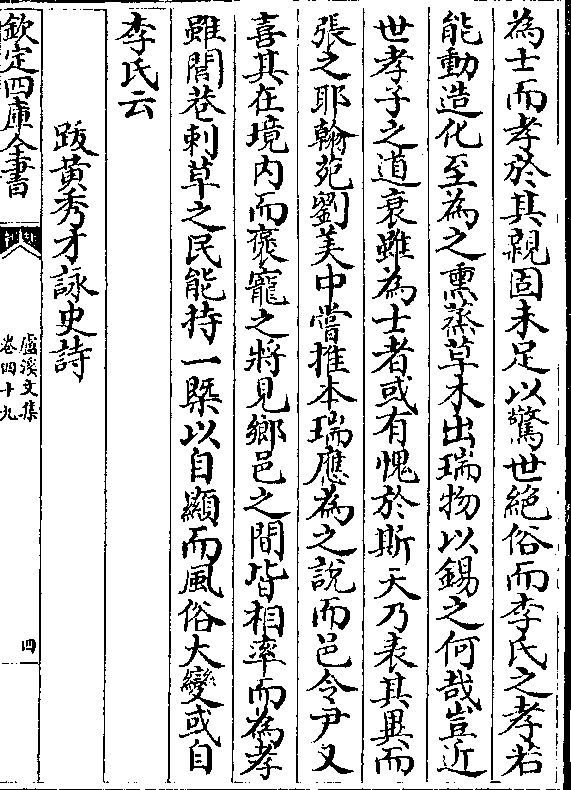 為士而孝於其親固未足以驚世絶俗而李氏之孝若
能動造化至為之熏蒸草木出瑞物以錫之何哉豈近
世孝子之道衰雖為士者或有愧於斯天乃表其異而
張之耶翰苑劉美中嘗推本瑞應為之說而邑令尹又
喜其在境内而褒寵之將見鄉邑之間皆相率而為孝
雖閭巷刺草之民能持一槩以自顯而風俗大變或自
李氏云
跋黄秀才詠史詩
欽定四庫全書
盧溪文集
卷四十九
四